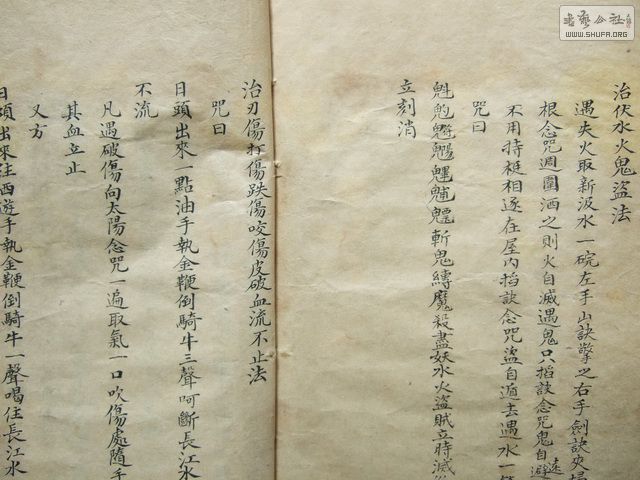 治伏水火鬼盜法
遇失火取新汲水一碗左手山訣擎之右手劍訣
根念咒週圍洒之則火自滅遇鬼只掐訣念咒鬼自遠避
不用持梃相逐在屋內掐訣念咒盜自遁去遇水一
咒曰
斬鬼縛魔殺盡妖水火盜賊立時滅
立刻消
治刃傷打傷跌傷咬傷皮破血流不止法
咒曰
日頭出來一點油手執金鞭倒騎牛三聲呵斷長江水
不流
凡遇破傷向太陽念咒一遍取氣一口吹傷處隨手
其血立止
又方
日頭出來往西遊手執金鞭倒騎牛一聲喝住長江水
書藝公社
WWW.SHUFA.ORG